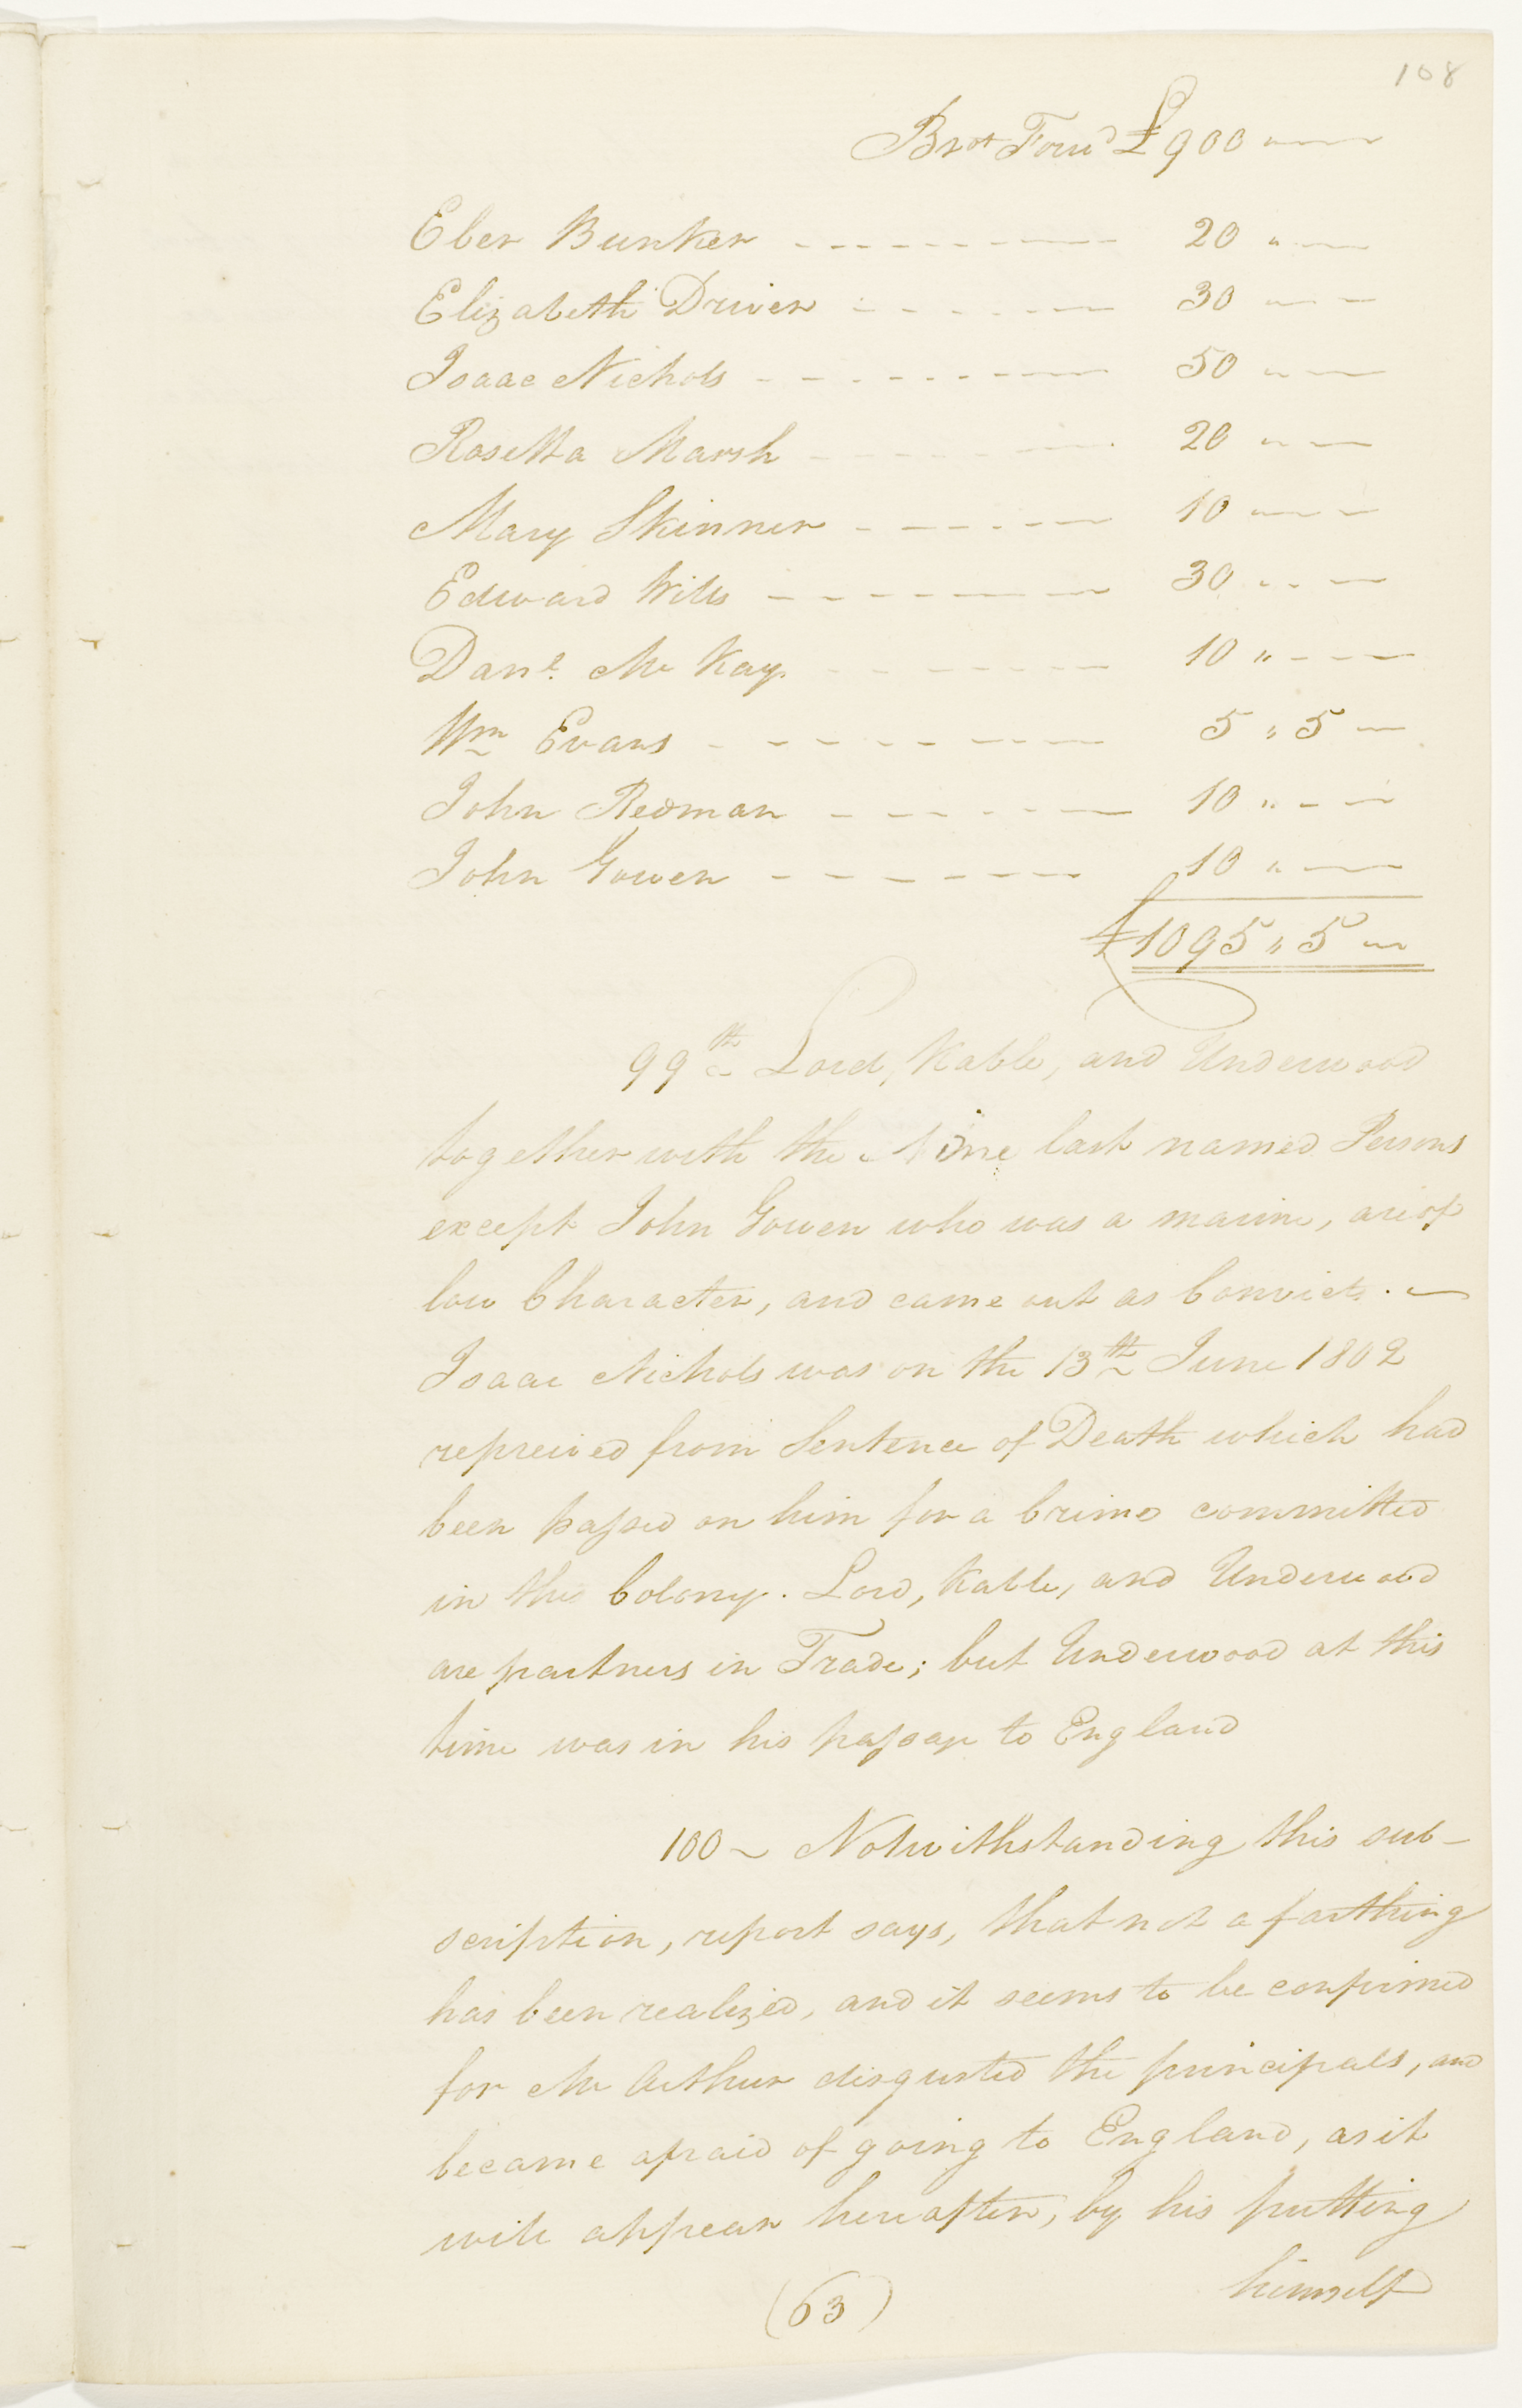 108
Brot Forwd £900 " —
Eber Bunker - - - - - - - 20 " —
Elizabeth Driver - - - - - - 30 " —
Isaac Nichols - - - - - - - 50 " —
Rosetta Marsh - - - - - - 20 " —
Mary Skinner - - - - - - 10 " —
Edward Wills - - - - - - - 30 " —
Danl. Mc Kay - - - - - - 10 " —
Wm Evans - - - - - - - 5 " 5 —
John Redman - - - - - - 10 " —
John Gowen - - - - - - - 10 " —
£1095 " 5 —
99th Lord, Kable, and Underwood
together with the Nine last named Persons
except John Gowen who was a marine, are of
low Character, and came out as Convicts. —
Isaac Nichols was on the 13th June 1802
repreived from Sentence of Death which had
been passed on him for a Crime committed
in this Colony. Lord, Kable, and Underwood
are partners in Trade; but Underwood at this
time was in his passage to England
100 ~ Notwithstanding this sub-
scription, report says, that not a farthing
has been realized, and it seems to be confirmed
for Mc Arthur disgusted the principals, and
became afraid of going to England, as it
will appear hereafter, by his putting
himself
(63)